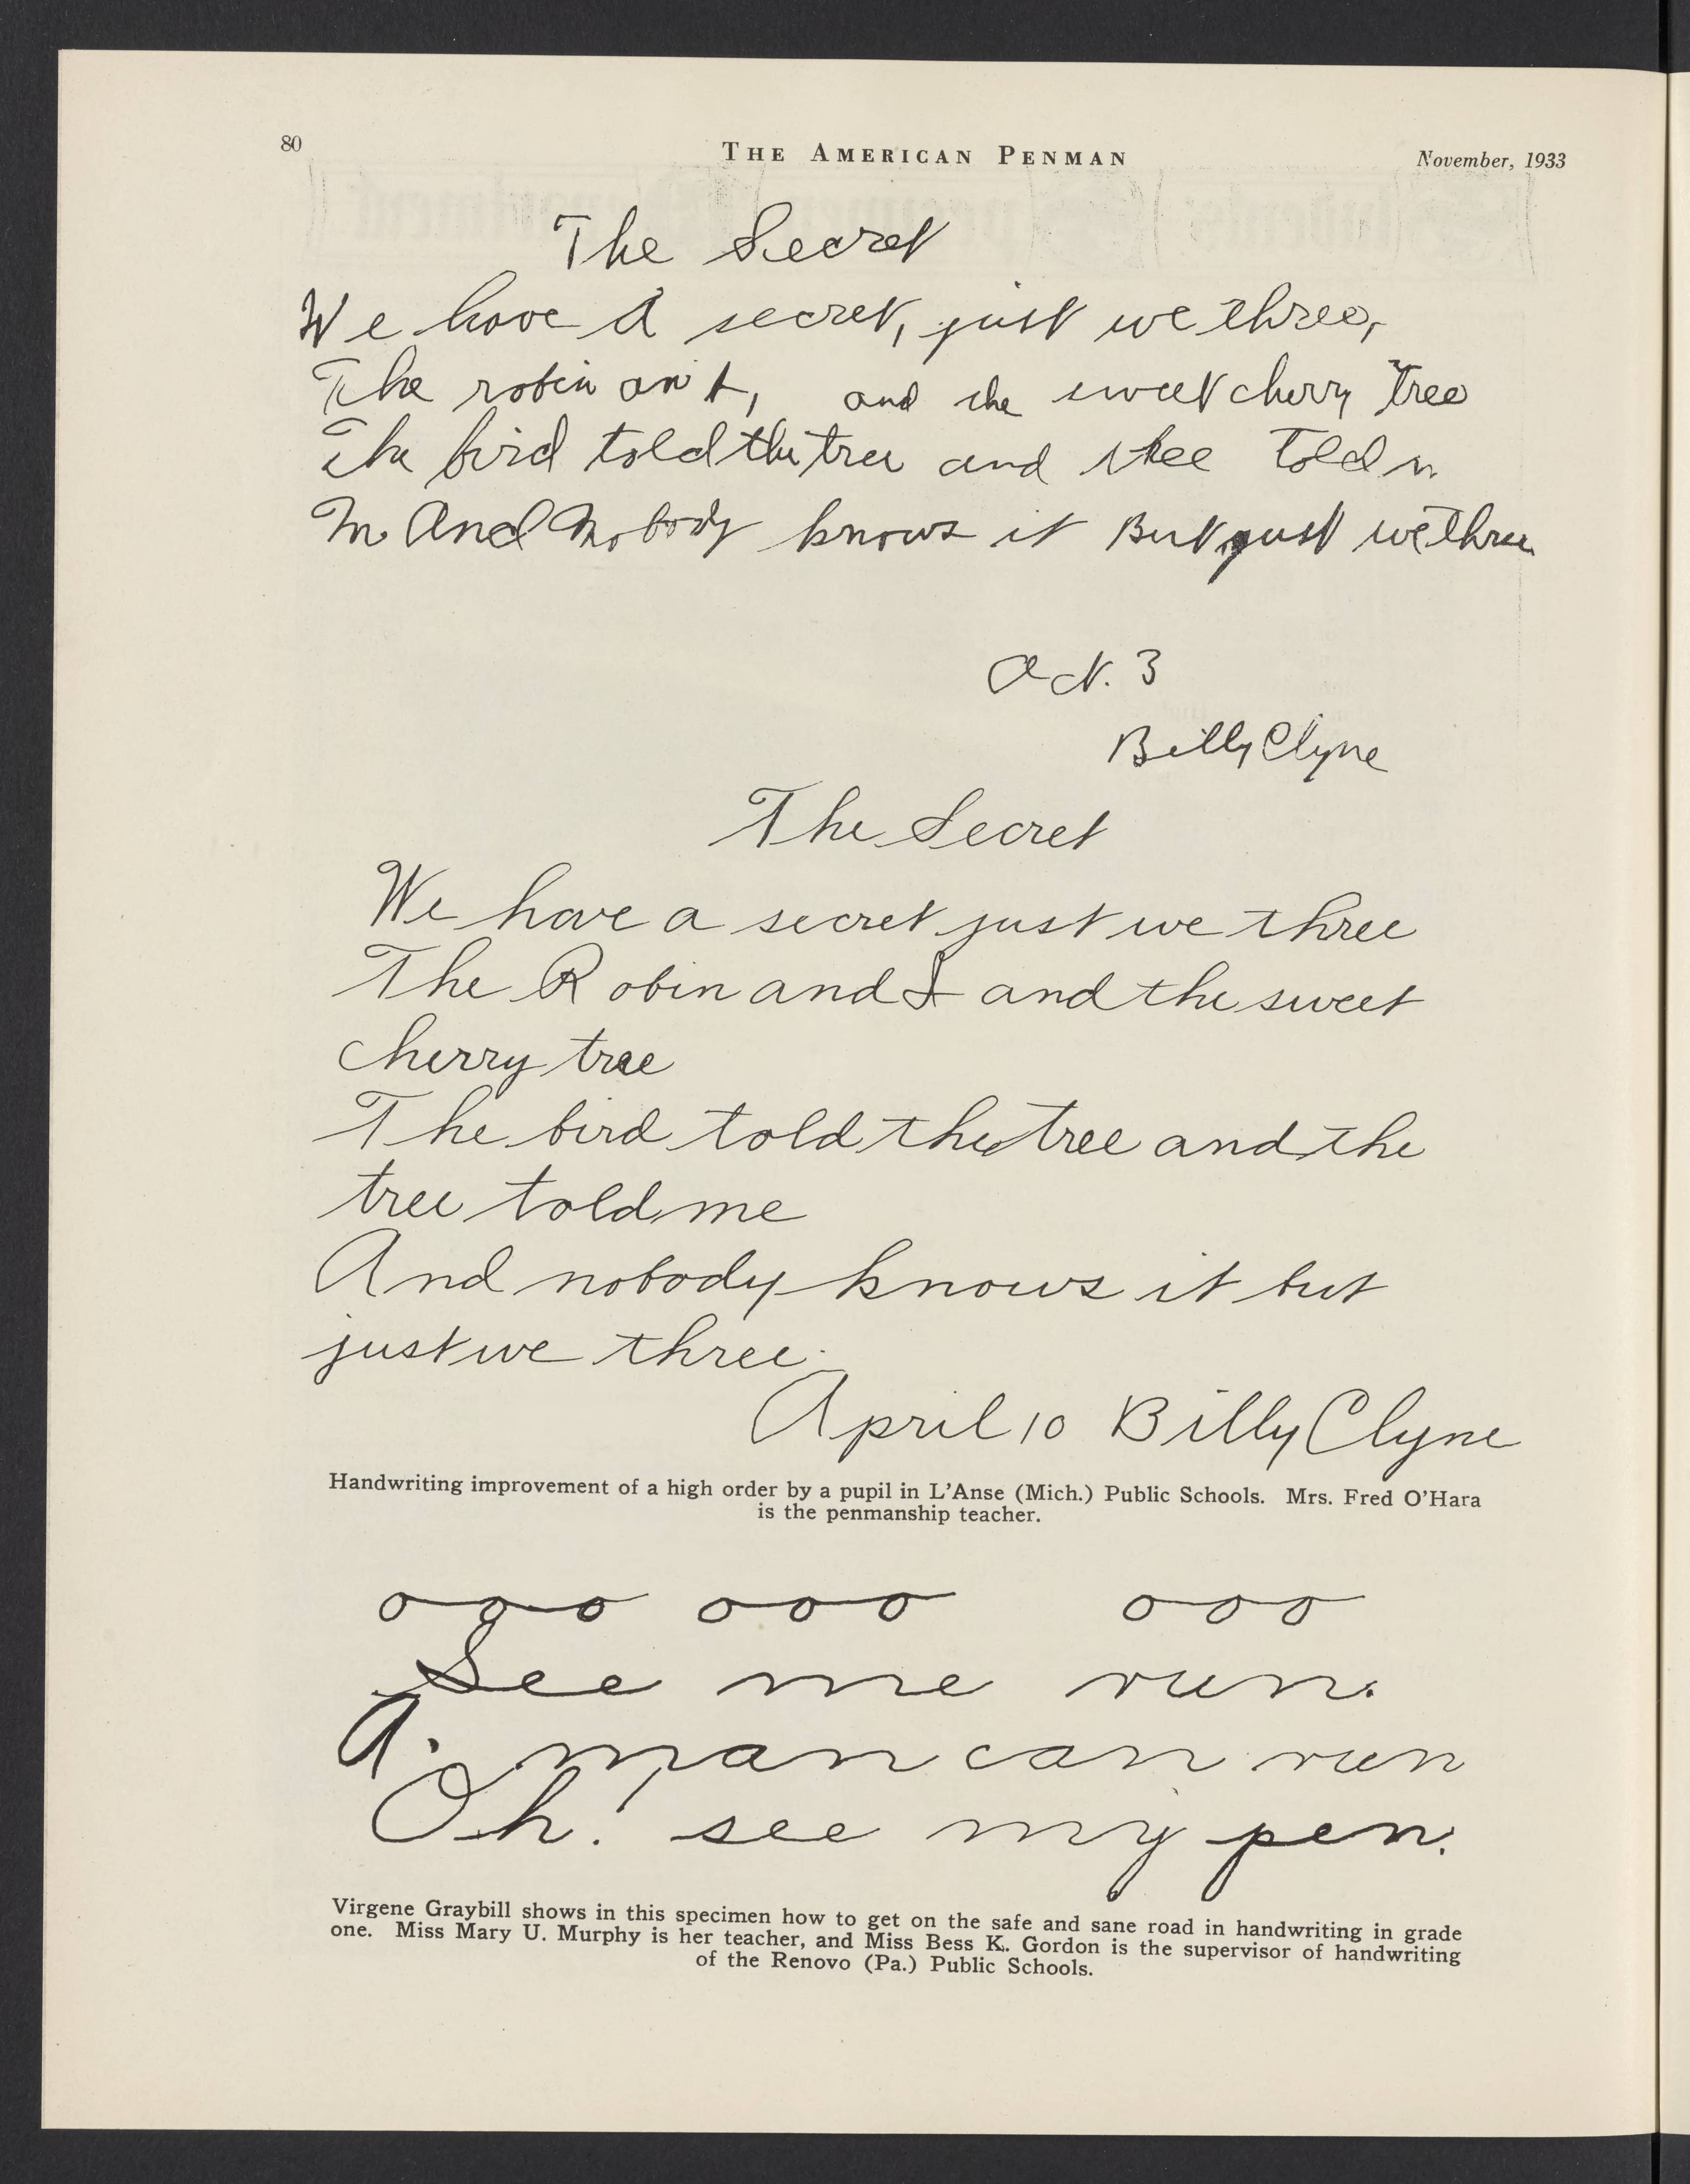 80
THE AMERICAN PENMAN
November, 1933
The Secret
We have A secret, just we three,
The robin an I, and the sweet cherry Tree
The bird told the tree and thee Told
And Nobody knows it But just we three
Oct. 3
Billy Clyne
The Secret
We have a secret just we three
The Robin and I and the sweet
cherry tree
The bird told the tree and the
tree told me
And nobody knows it but
just we three.
April 10 Billy Clyne
Handwriting improvement of a high order by a pupil in L'Anse (Mich.) Public Schools. Mrs. Fred O'Hara
is the penmanship teacher.
o o o o o o o o o
See me run.
A. man can run
Oh! see my pen.
Virgene Graybill shows in this specimen how to get on the safe and sane road in handwriting in grade
one. Miss Mary U. Murphy is her teacher, and Miss Bess K. Gordon is the supervisor of handwriting
of the Renovo (Pa.) Public Schools.